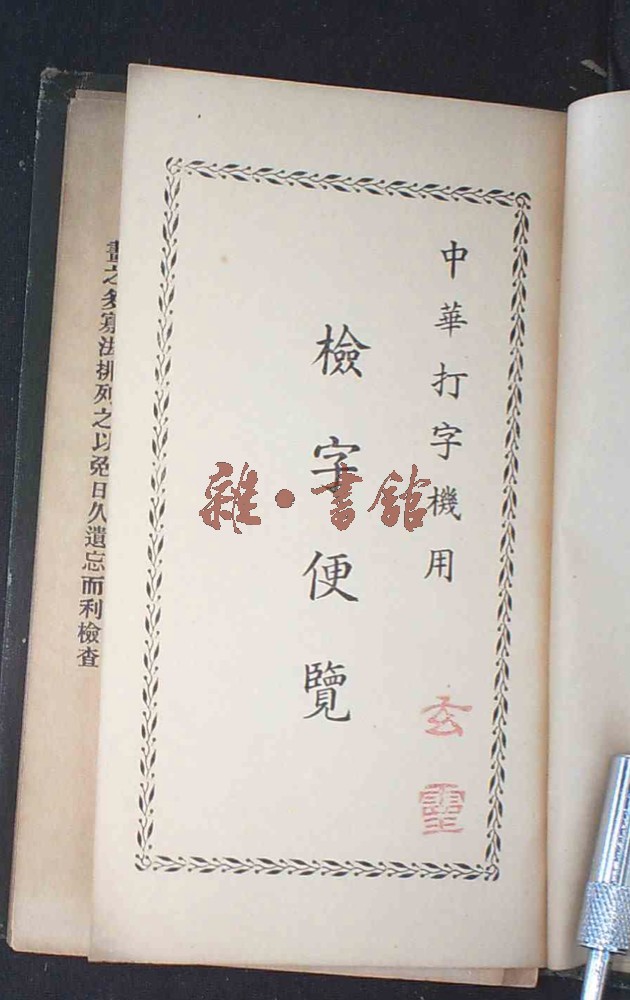 中華打字機用
檢字便覽
玄靈
雜·書館
畫之多寡法排列之以免日久遺忘而利檢查